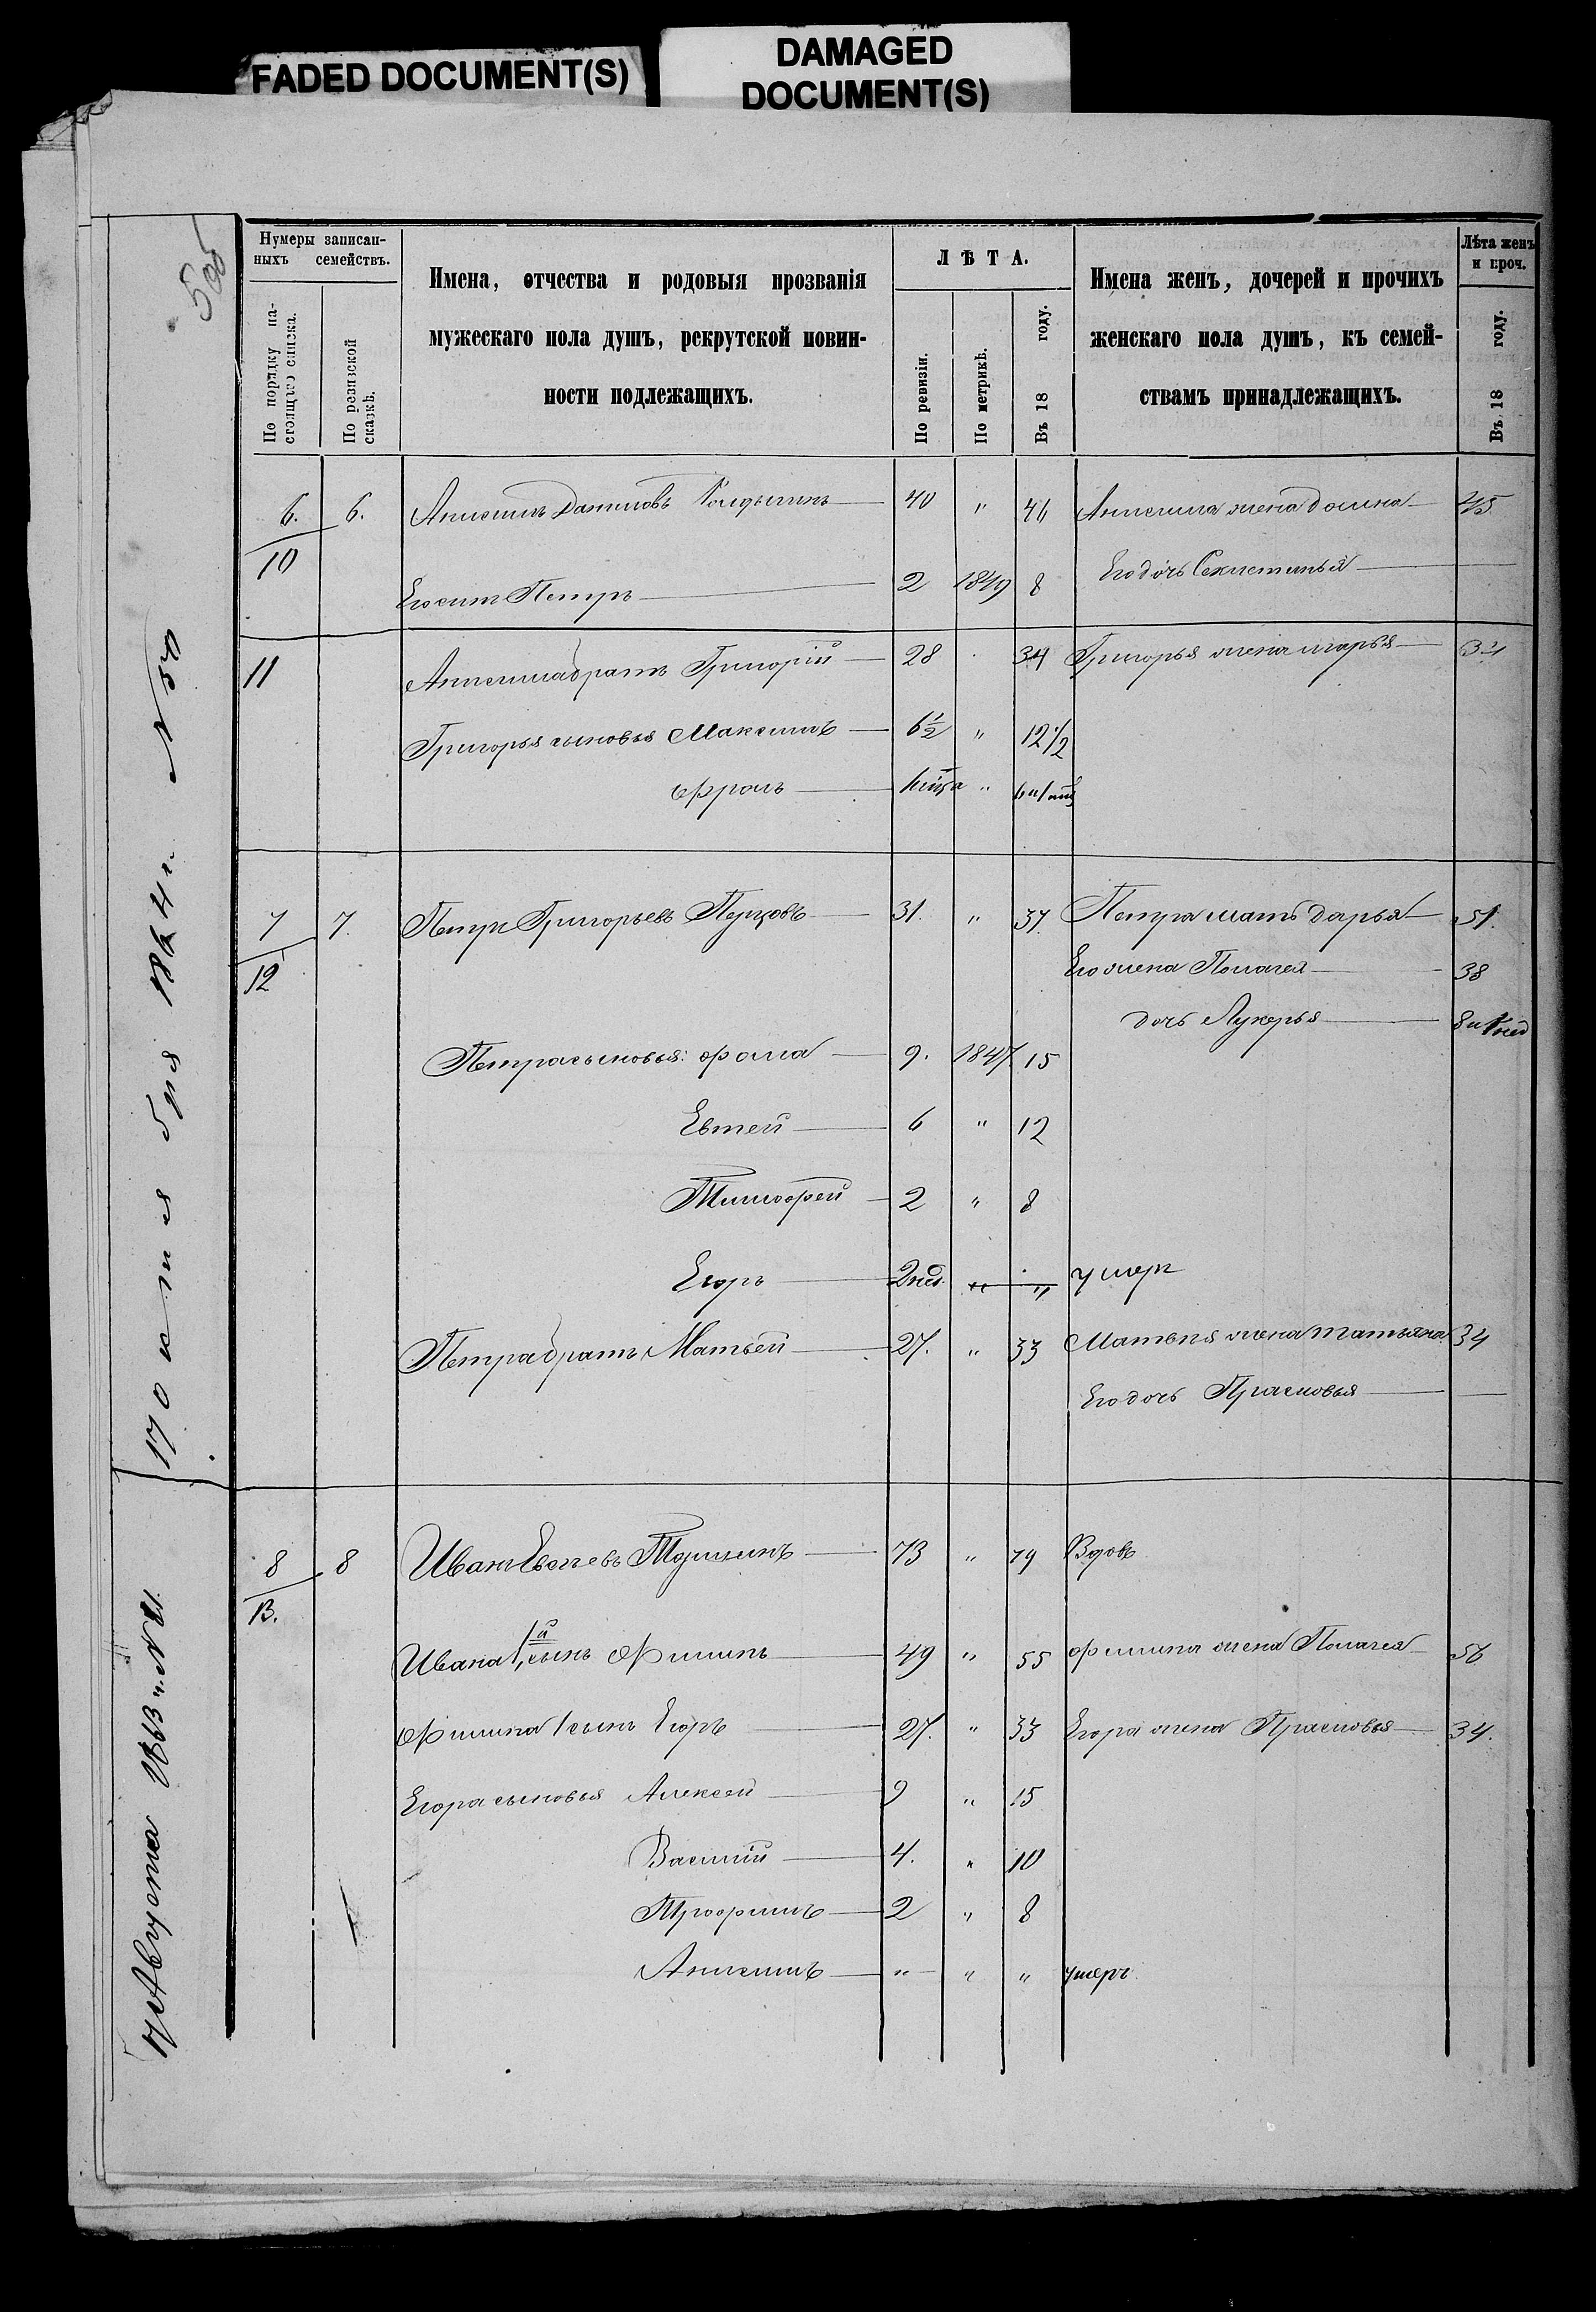 FADED DOCUMENT(S)
DAMAGED
DOCUMENT(S)
505
Нумеры записан-
ныхъ семействъ.
По порядку на-
стоящаго списка.
По ревизской
сказкѣ.
Имена, отчества и родовыя прозванія
мужескаго пола душъ, рекрутской повин-
ности подлежащихъ.
ЛѢТА.
По ревизіи.
По метрикѣ.
Въ 18 году.
Имена женъ, дочерей и прочихъ
женскаго пола душъ, къ семей-
ствамъ принадлежащихъ.
Лѣта женъ
и проч.
Въ 18 году.
6. 6. Анисимъ Даниловъ 40 " 46 Анисима жена Домна 45
10
Его сынъ Петръ 2 1849 8 Его дочь
11 Анисима братъ Григорій 28 34 Григорья жена Марья 34
Григорья сыновья Максимъ 6½ " 12½
Фролъ "
7 7. Петръ Григорьевъ 31. " 37. Петра мать Дарья 51.
12 Его жена Полагея 38
дочь Лукерья
Петра сыновья: Фома 9. 1847. 15
Евтей 6 " 12
Тимофей 2 " 8
Егоръ 2 нед. " " умеръ
Петра братъ Матвей 27. " 33 Матвея жена Татьяна 34
Его дочь Прасковья
8 8 Иванъ 73 " 79 Вдовъ
13.
Ивана 1й сынъ Филипъ 49 " 55 Филипа жена Полагея 56
Филипа 1 сынъ Егоръ 27. " 33 Егора жена Прасковья 34.
Егора сыновья Алексей 9 " 15
Василій 4. " 10
Трофимъ 2 " 8
Анисимъ " " " умеръ
17 Августа 1863 г. № 21.
17 октября 1864 г. № 50